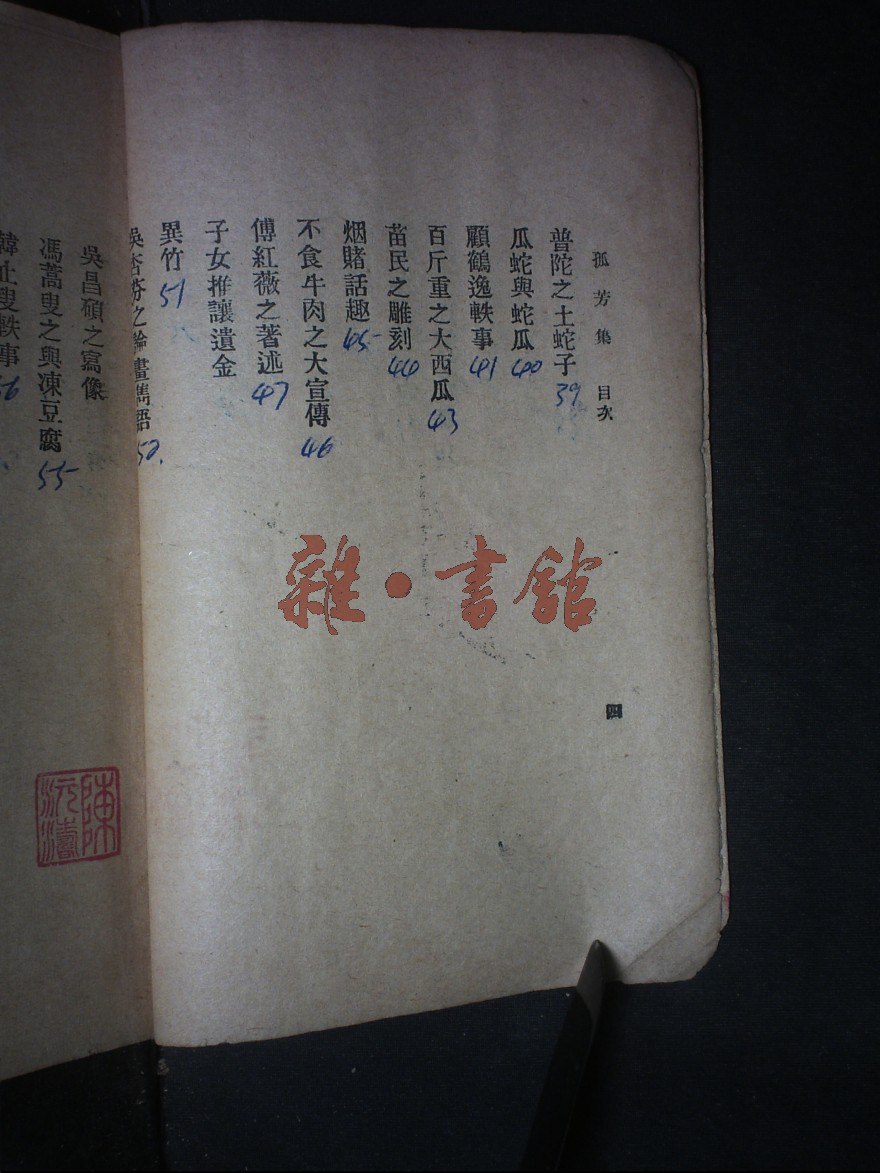 孤芳集 目次
普陀之土蛇子 39
瓜蛇與蛇瓜 40
顧鶴逸軼事 41
百斤重之大西瓜 43
苗民之雕刻 44
烟賭話趣 45
不食牛肉之大宣傳 46
傅紅薇之著述 47
子女推讓遺金
異竹 51
吳杏芬之論畫雋語 52
吳昌碩之寫像
馮蒿叟之與凍豆腐 55
叟軼事 56
四
雜·書館
陳沅濤